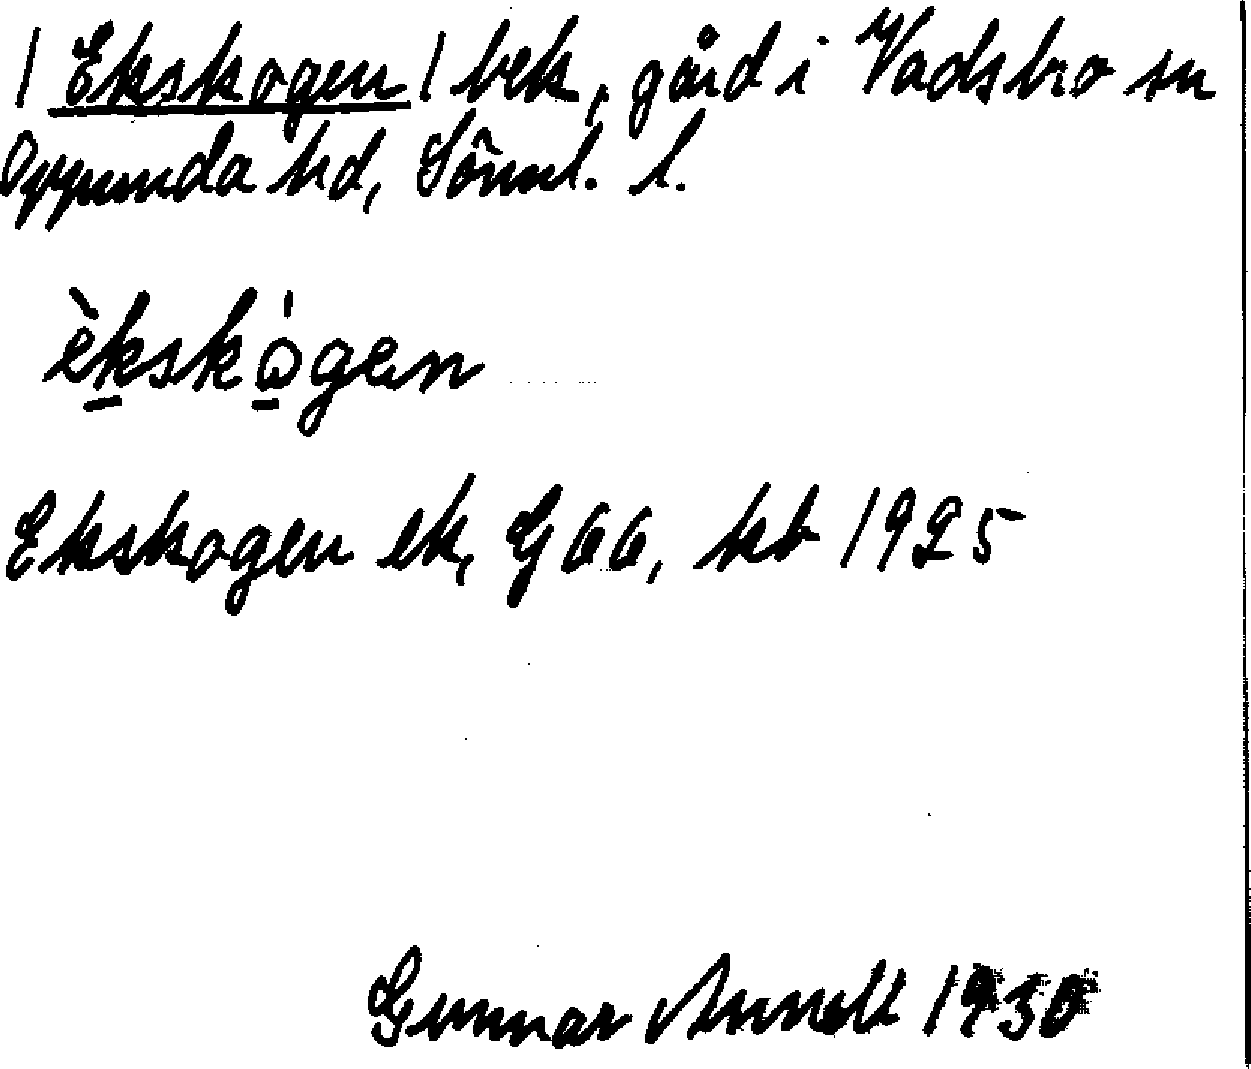 / Ekskogen / bek., gård i Vadsbro sn
Oppunda hd, Sörml. l.
èkskógen
Ekskogen ek, G 66, kb 1925
Gunnar 1930